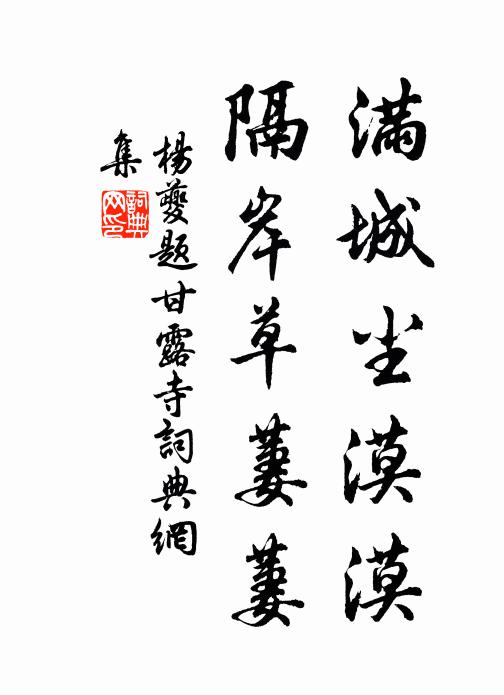 滿城尘漠漠
隔岸草萋萋
楊夔題甘露寺詞典網
集
詞典
网印